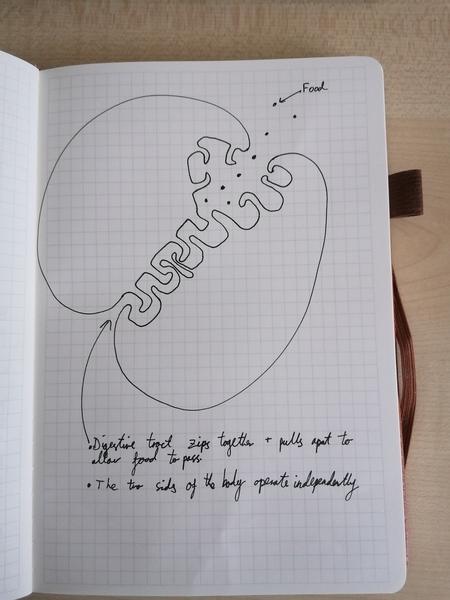 Food
•Digestive tract zips together + pulls apart to
allow food to pass.
• The two sides of the body operate independently